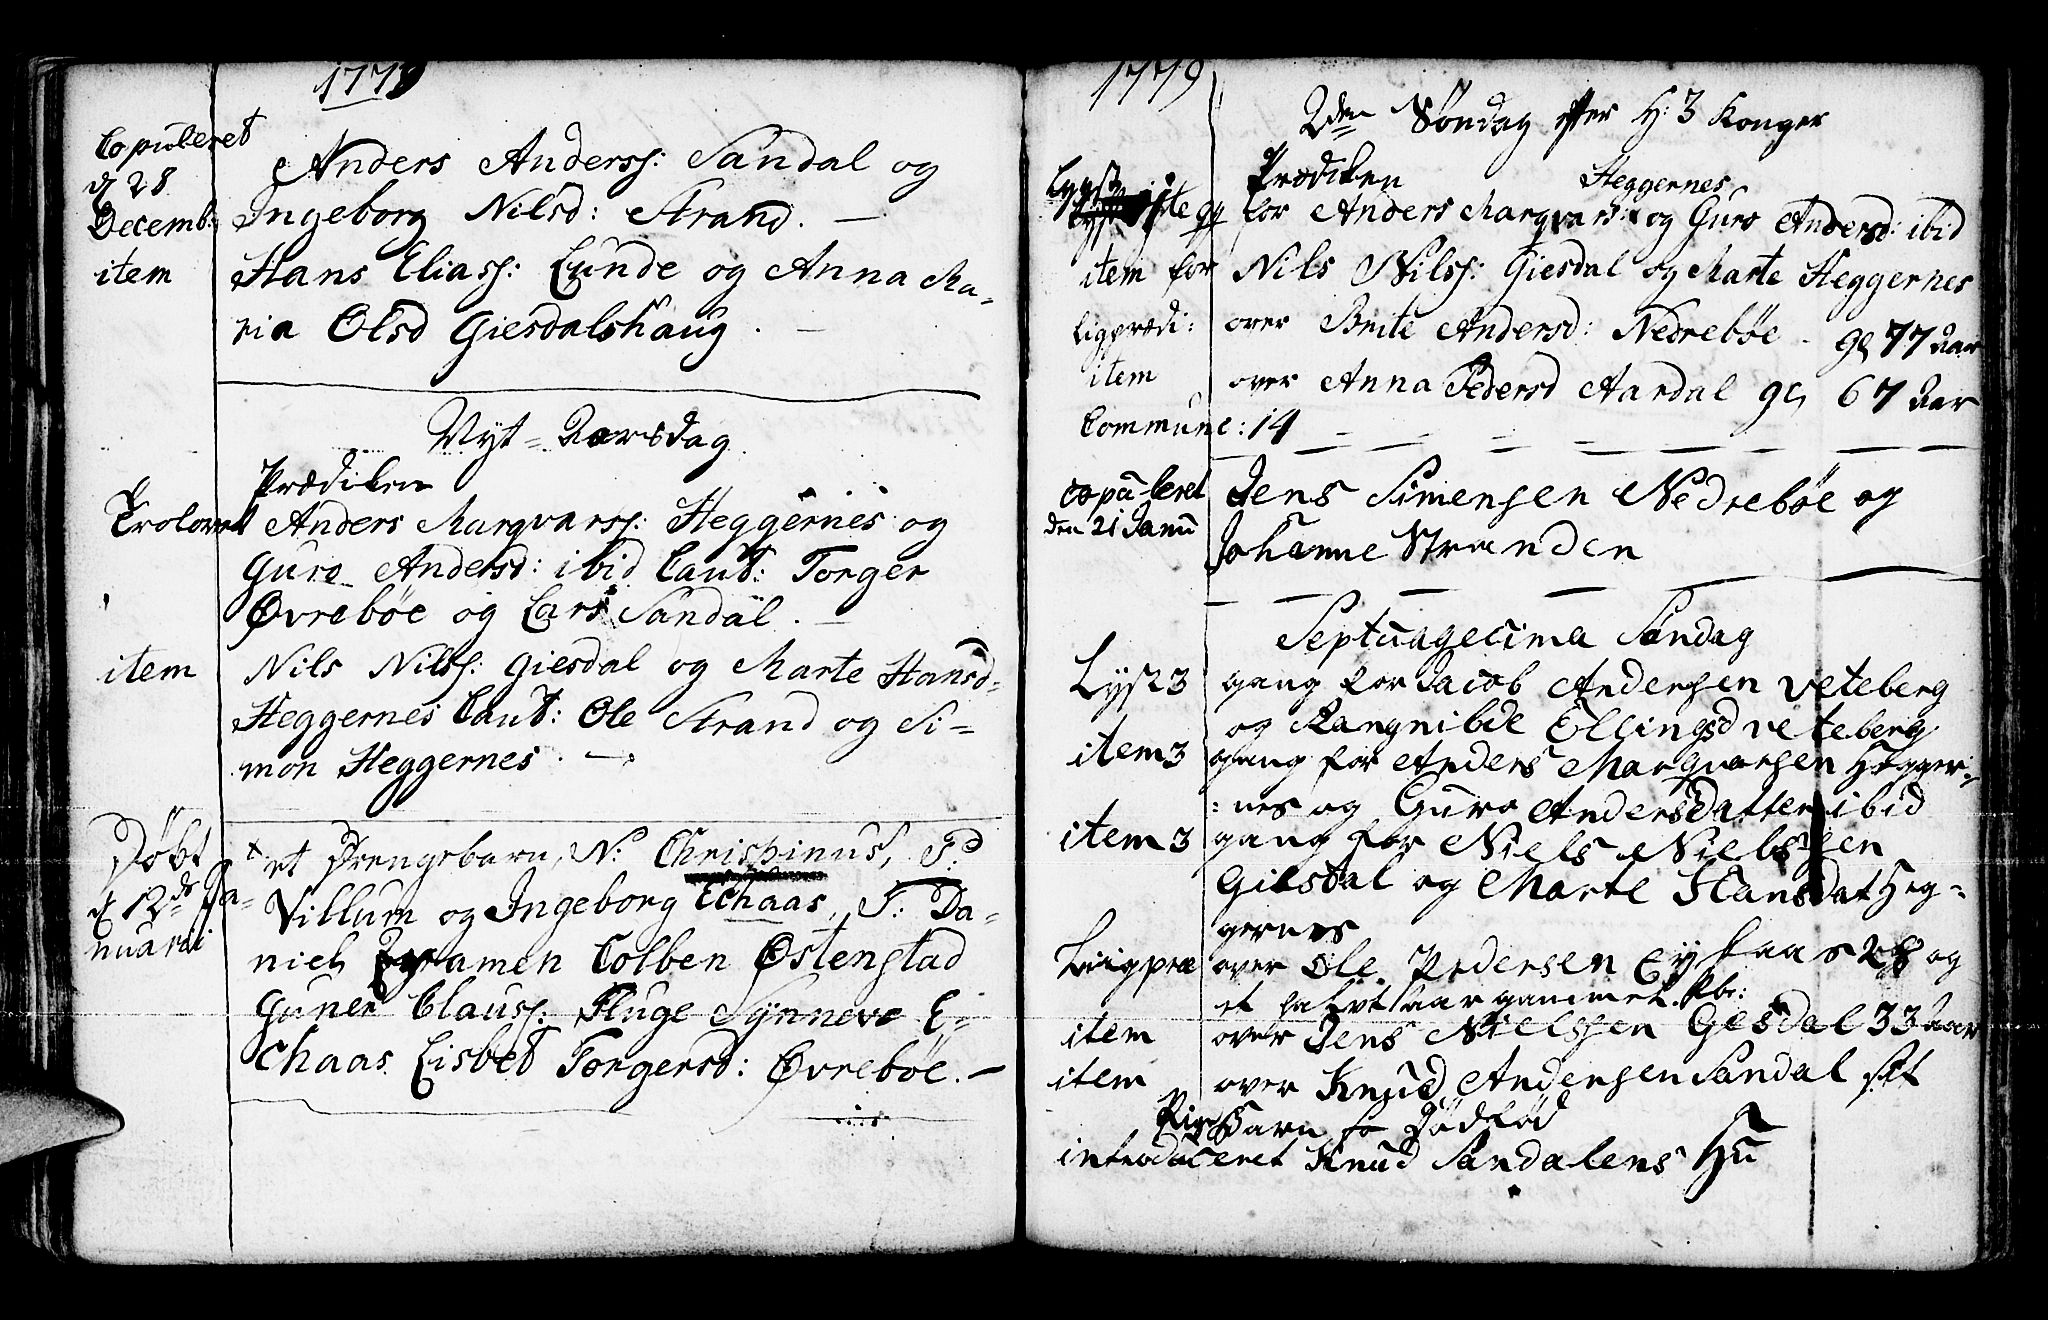 1779
Copuleret
d 28
Decemb:
Anders Anderss: Sandal og
Ingeborg Nilsd: Strand. —
item Hans Eliass: Lunde og Anna Ma-
ria Olsd Giesdalshaug. —
Nyt-Aarsdag
Prædiken
Trolovet Anders Marqvarss: Heggernes og
Guro Andersd: ibid Caut: Torger
Øvrebøe og Lars Sandal. —
item Nils Nilss: Giesdal og Marte Hansd-
Heggernes Caut: Ole Strand og Si-
mon Heggernes. —
Døbt
d 12de Ja-
nuarii
et Drengebarn, N: Chrispinus, F:
Villum og Ingeborg Echaas, T: Da-
niel Colben Østenstad
Guner Clauss: Fluge Synneve E-
chaas Lisbet Torgersd: Øvrebøe. —
1779
2den Søndag efter H: 3 Konger
Prædiken
Heggernes
Lyst
for Anders Marqvars: og Guro Andersd: ibid
item for Nils Nilss: Giesdal og Marte Heggernes
ligprædi: over Brite Andersd: Nedrebøe - gl 77 Aar
item over Anna Pedersd Aardal gl 67 Aar
Commune: 14
copuleret
den 21 Janu
Jens Simensen Nedrebøe og
Johanne Stranden
Septuagecima Søndag
Lyst 3 gang for Jacob Andersen veteberg
og Rangnilde Ellingsd veteberg
item 3 gang for Anders Marqvarsen Hegger-
:nes og Guro Andersdatter ibid
item 3 gang for Niels Nielssen
Giesdal og Marte Hansdat Heg-
gernes
Liigpræ over Ole Pedersen Eyskaas 28 og
et halvt aar gammel
item over Jens Nielssen Gesdal 33 Aar
item over Knud Andersen Sandal sit
Barn Dødfød
introduceret Knud Sandalens Hu